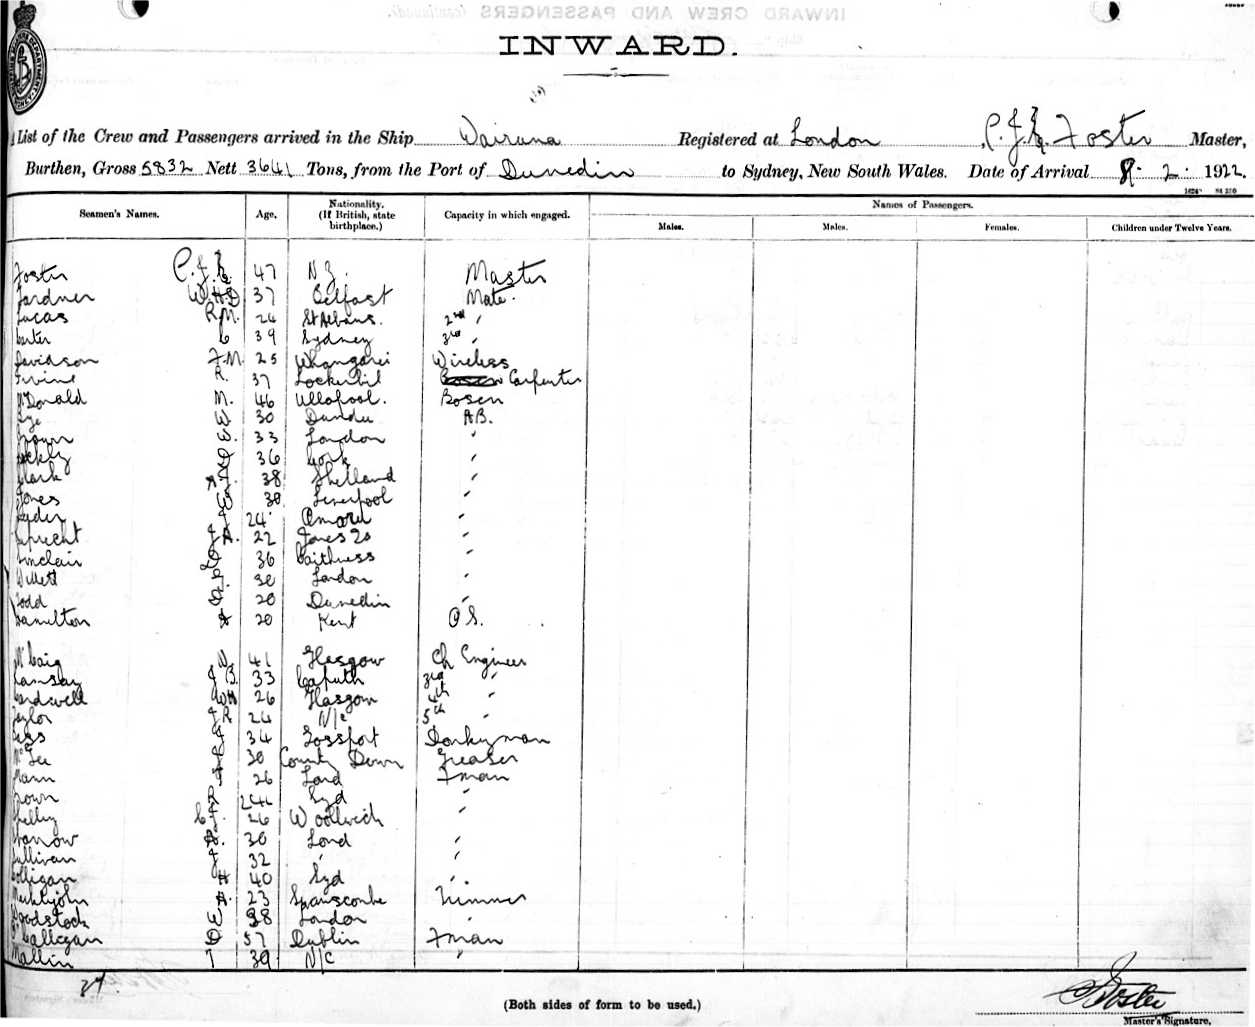 INWARD.
List of the Crew and Passengers arrived in the Ship Wairuna Registered at London C.J. Foster Master,
Burthen, Gross 5832 Nett 3641 Tons, from the Port of Dunedin to Sydney, New South Wales. Date of Arrival 8. 2. 1922.
Seamen's Names. Age. Nationality. (If British, state birthplace.) Capacity in which engaged. Names of Passengers.
Males. Males. Females. Children under Twelve Years.
Foster 47 N Z. Master
Gardner W.H.D 37 Belfast Mate.
Lucas R.M. 24 St Albans. 2nd "
Carter C 39 Sydney 3rd "
Davidson F.M. 25 Whangarei Wireless
Irvine R. 37 Lockerbie Carpenter
McDonald M. 46 Ullapool. Bosen
W 30 Dundee A.B.
Brown W. 33 London "
36 Cork "
Clark 38 Shetland "
Jones W 30 Liverpool "
Ryder J 24 Oamaru "
J.A. 22 "
Sinclair D 36 Caithness "
Willett 30 London "
Todd 20 Dunedin "
Hamilton A 20 Kent O.S.
McCaig 41 Glasgow Ch Engineer
Ramsay J.B. 33 Caputh 3rd "
Cardwell W H 26 Glasgow 4th "
Taylor J R 24 N/c 5th "
J 34 Gosport Donkeyman
McGee J 30 County Down Greaser
Mann 26 Lond Fman
Brown R Syd "
Shelley C J. 26 Woolwich "
Warrow 30 Lond "
Sullivan J 32 " "
Colligan H 40 Syd "
Meiklejohn A. 23 Trimmer
Woodstock W 38 London "
O'Callegan D 57 Dublin Fman
Mallin T 39 N/c "
34
(Both sides of form to be used.)
Foster
Master's Signature.